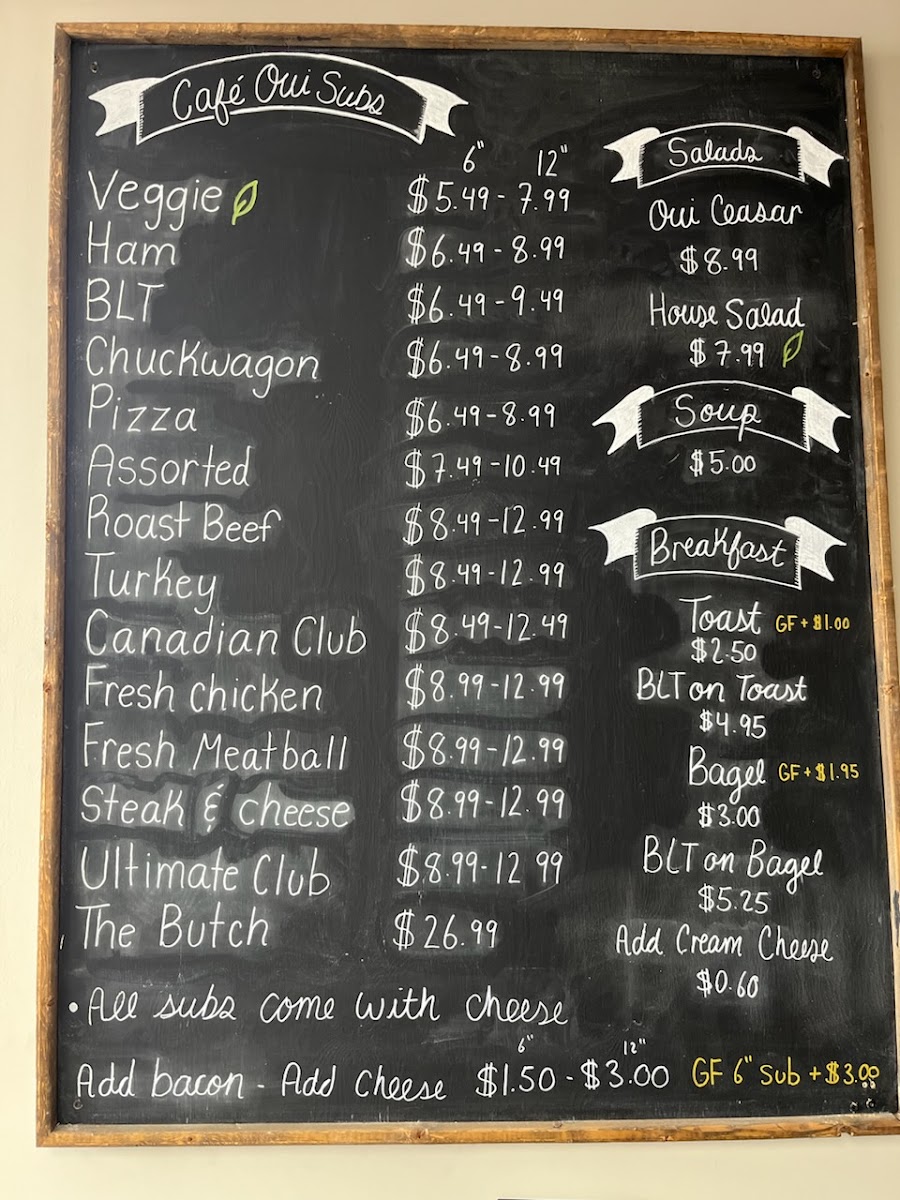 Café Oui Subs
6" 12"
Veggie $5.49 - 7.99
Ham $6.49 - 8.99
BLT $6.49 - 9.49
Chuckwagon $6.49 - 8.99
Pizza $6.49 - 8.99
Assorted $7.49 - 10.49
Roast Beef $8.49 - 12.99
Turkey $8.49 - 12.99
Canadian Club $8.49 - 12.49
Fresh chicken $8.99 - 12.99
Fresh Meatball $8.99 - 12.99
Steak & cheese $8.99 - 12.99
Ultimate Club $8.99 - 12 99
The Butch $26.99
• All subs come with cheese
6" 12"
Add bacon - Add cheese $1.50 - $3.00 GF 6" sub + $3.00
Salads
Oui Ceasar
$8.99
House Salad
$7.99
Soup
$5.00
Breakfast
Toast GF + $1.00
$2.50
BLT on Toast
$4.95
Bagel GF + $1.95
$3.00
BLT on Bagel
$5.25
Add Cream Cheese
$0.60